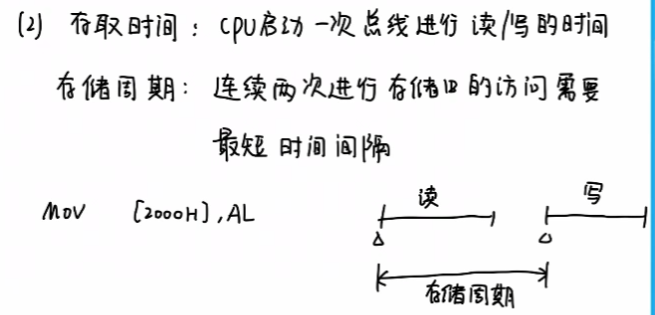 (2) 存取时间：CPU启动一次总线进行读/写的时间
存储周期：连续两次进行存储器的访问需要
最短时间间隔
MOV [2000H],AL
读
写
存储周期